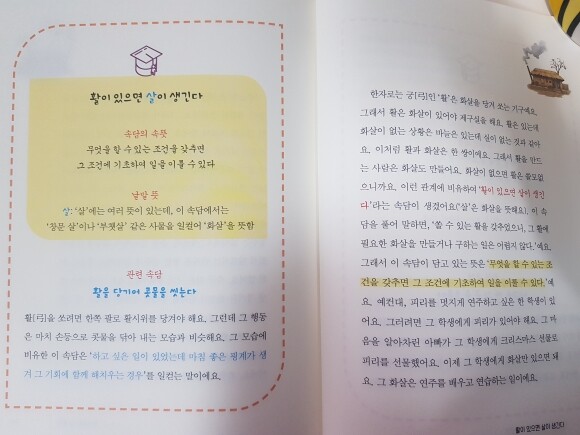 활이 있으면 살이 생긴다
속담의 속뜻
무엇을 할 수 있는 조건을 갖추면
그 조건에 기초하여 일을 이룰 수 있다
낱말 뜻
살: ‘살’에는 여러 뜻이 있는데, 이 속담에서는
‘창문 살’이나 ‘부챗살’ 같은 사물을 일컬어 ‘화살’을 뜻함
관련 속담
활을 당기어 콧물을 씻는다
활[弓]을 쏘려면 한쪽 팔로 활시위를 당겨야 해요. 그런데 그 행동
은 마치 손등으로 콧물을 닦아 내는 모습과 비슷해요. 그 모습에
비유한 이 속담은 ‘하고 싶은 일이 있었는데 마침 좋은 핑계가 생
겨 그 기회에 함께 해치우는 경우’를 일컫는 말이에요.
한자로는 궁[弓]인 ‘활’은 화살을 당겨 쏘는 기구예요.
그래서 활은 화살이 있어야 제구실을 해요. 활은 있는데
화살이 없는 상황은 바늘은 있는데 실이 없는 것과 같아
요. 이처럼 활과 화살은 한 쌍이에요. 그래서 활을 만드
는 사람은 화살도 만들어요. 화살이 없으면 활은 쓸모없
으니까요. 이런 관계에 비유하여 ‘활이 있으면 살이 생긴
다’라는 속담이 생겼어요(‘살’은 화살을 뜻해요). 이 속
담을 풀어 말하면, ‘쏠 수 있는 활을 갖추었으니, 그 활에
필요한 화살을 만들거나 구하는 일은 어렵지 않다.’예요.
그래서 이 속담이 담고 있는 뜻은 ‘무엇을 할 수 있는 조
건을 갖추면 그 조건에 기초하여 일을 이룰 수 있다.’예
요. 예컨대, 피리를 멋지게 연주하고 싶은 한 학생이 있
어요. 그러려면 그 학생에게 피리가 있어야 해요. 그 마
음을 알아차린 아빠가 그 학생에게 크리스마스 선물로
피리를 선물했어요. 이제 그 학생에게 화살만 있으면 돼
요. 그 화살은 연주를 배우고 연습하는 일이에요.
활이 있으면 살이 생긴다